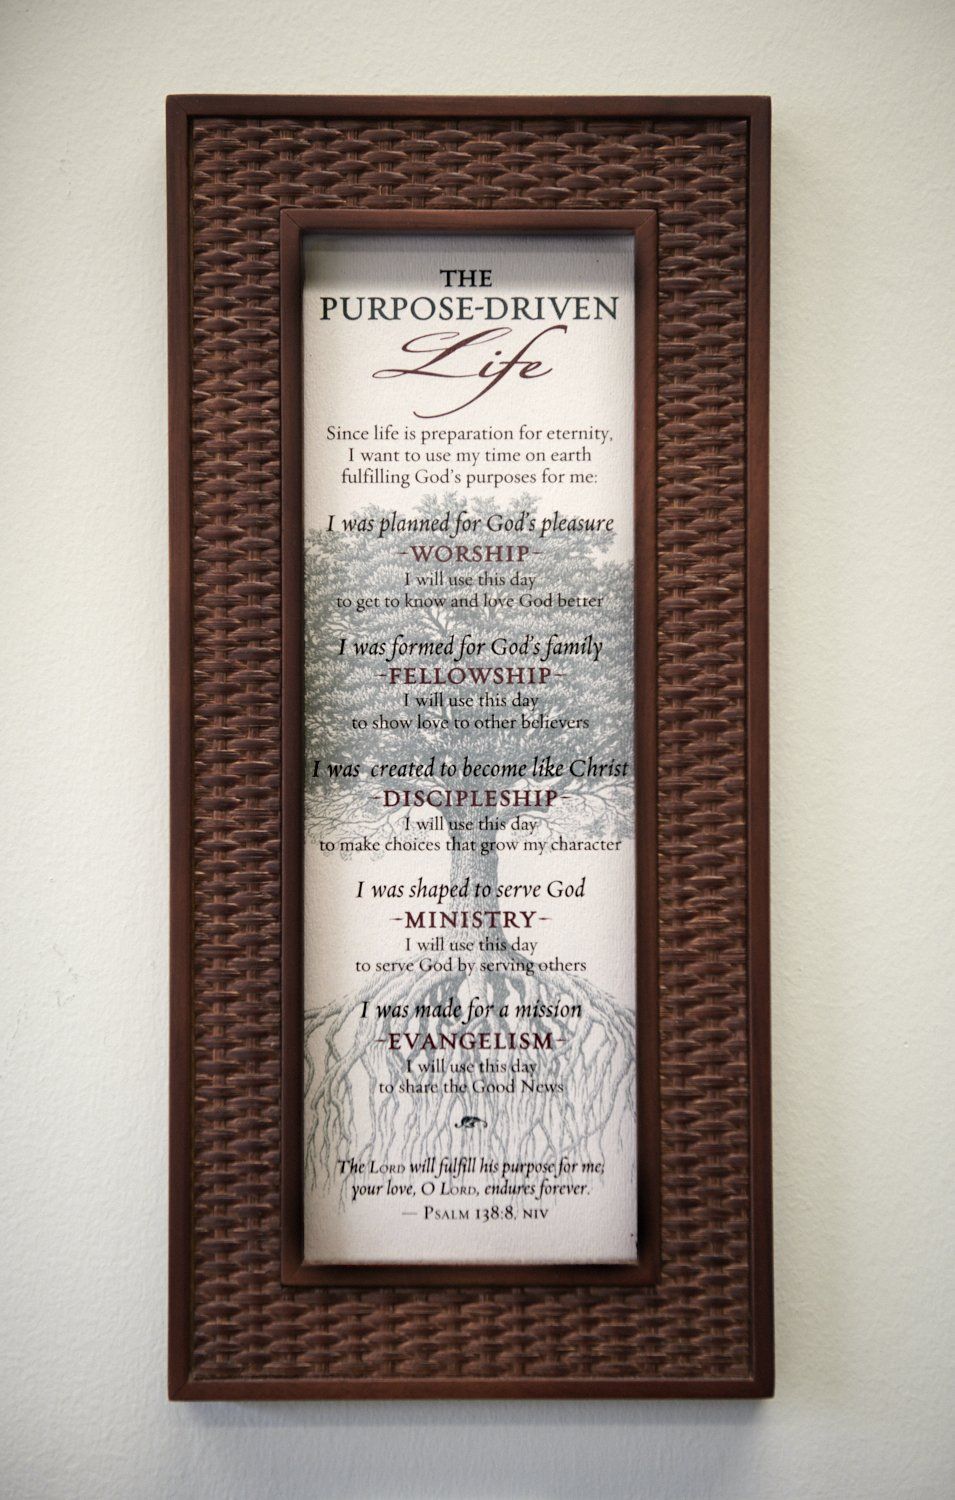 THE
PURPOSE-DRIVEN
Life
Since life is preparation for eternity,
I want to use my time on earth
fulfilling God's purposes for me:
I was planned for God's pleasure
-WORSHIP-
I will use this day
to get to know and love God better
I was formed for God's family
-FELLOWSHIP-
I will use this day
to show love to other believers
I was created to become like Christ
-DISCIPLESHIP-
I will use this day
to make choices that grow my character
I was shaped to serve God
-MINISTRY-
I will use this day
to serve God by serving others
I was made for a mission
-EVANGELISM-
I will use this day
to share the Good News
The LORD will fulfill his purpose for me;
your love, O LORD, endures forever.
— PSALM 138:8, NIV